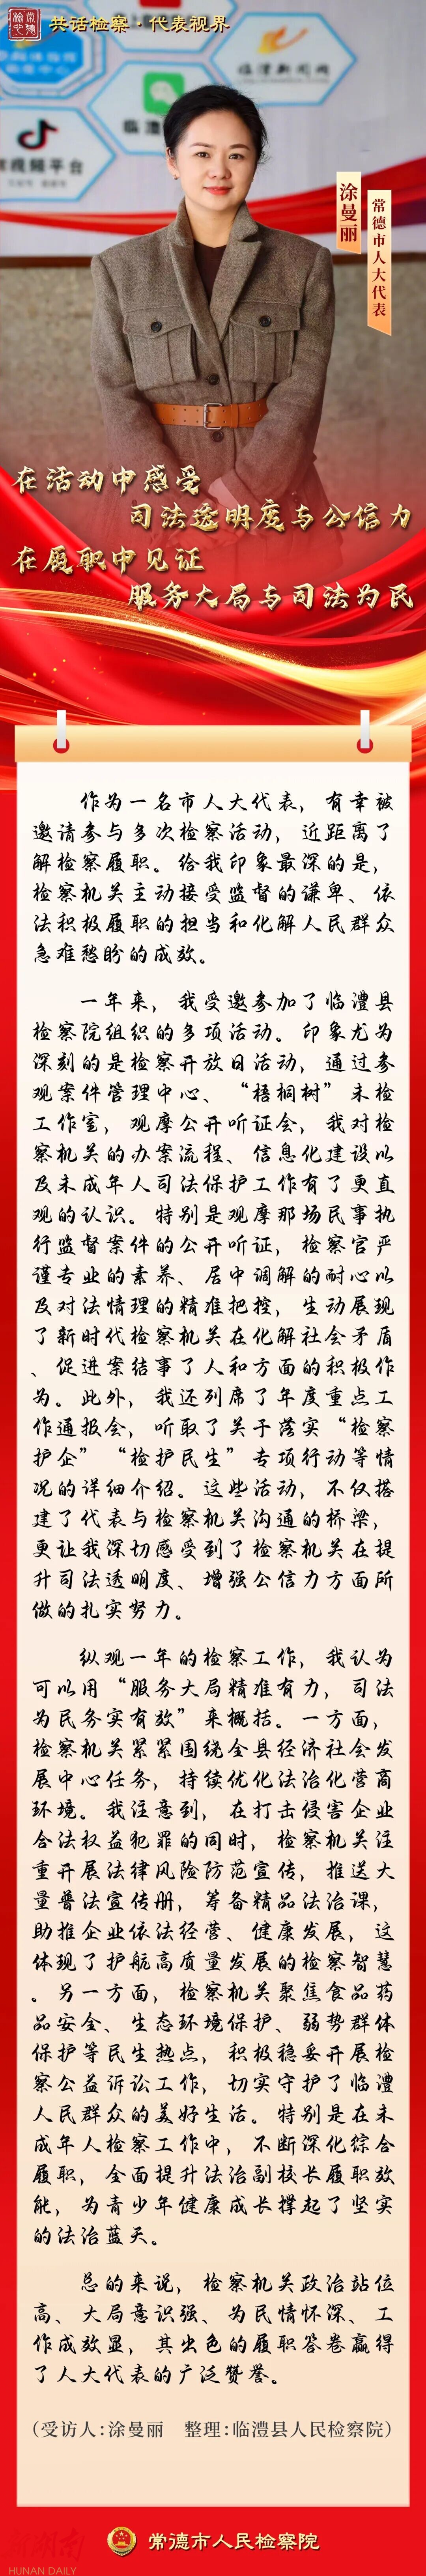 共话检察·代表视界
临澧新闻网
视频平台
临澧
涂曼丽
常德市人大代表
在活动中感受
司法透明度与公信力
在履职中见证
服务大局与司法为民
作为一名市人大代表，有幸被
邀请参与多次检察活动，近距离了
解检察履职。给我印象最深的是，
检察机关主动接受监督的谦卑、依
法积极履职的担当和化解人民群众
急难愁盼的成效。
一年来，我受邀参加了临澧县
检察院组织的多项活动。印象尤为
深刻的是检察开放日活动，通过参
观案件管理中心、“梧桐树”未检
工作室，观摩公开听证会，我对检
察机关的办案流程、信息化建设以
及未成年人司法保护工作有了更直
观的认识。特别是观摩那场民事执
行监督案件的公开听证，检察官严
谨专业的素养、居中调解的耐心以
及对法情理的精准把控，生动展现
了新时代检察机关在化解社会矛盾
、促进案结事了人和方面的积极作
为。此外，我还列席了年度重点工
作通报会，听取了关于落实“检察
护企”“检护民生”专项行动等情
况的详细介绍。这些活动，不仅搭
建了代表与检察机关沟通的桥梁，
更让我深切感受到了检察机关在提
升司法透明度、增强公信力方面所
做的扎实努力。
纵观一年的检察工作，我认为
可以用“服务大局精准有力，司法
为民务实有效”来概括。一方面，
检察机关紧紧围绕全县经济社会发
展中心任务，持续优化法治化营商
环境。我注意到，在打击侵害企业
合法权益犯罪的同时，检察机关注
重开展法律风险防范宣传，推送大
量普法宣传册，筹备精品法治课，
助推企业依法经营、健康发展，这
体现了护航高质量发展的检察智慧
。另一方面，检察机关聚焦食品药
品安全、生态环境保护、弱势群体
保护等民生热点，积极稳妥开展检
察公益诉讼工作，切实守护了临澧
人民群众的美好生活。特别是在未
成年人检察工作中，不断深化综合
履职，全面提升法治副校长履职效
能，为青少年健康成长撑起了坚实
的法治蓝天。
总的来说，检察机关政治站位
高、大局意识强、为民情怀深、工
作成效显，其出色的履职答卷赢得
了人大代表的广泛赞誉。
（受访人:涂曼丽 整理:临澧县人民检察院）
常德市人民检察院
新湖南
HUNAN DAILY